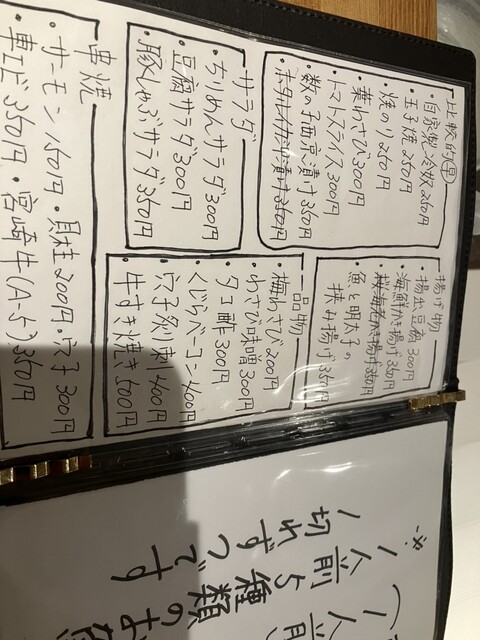 比較的早
・自家製冷奴 250円
・玉子焼 250円
・焼のり 250円
・葉わさび 300円
・トマトスライス 300円
・数の子西京漬け 350円
・ホタルイカ沖漬け 350円
揚げ物
・揚出豆腐 300円
・海鮮かき揚げ 350円
・桜海老かき揚げ 350円
・魚と明太子の
挟み揚げ 350円
サラダ
・ちりめんサラダ 300円
・豆腐サラダ 300円
・豚しゃぶサラダ 350円
一品物
・梅わさび 200円
・わさび味噌 300円
・タコ酢 300円
・くじらベーコン 400円
・穴子炙り刺 400円
・牛すき焼き 500円
串焼
・サーモン 150円・貝柱 200円・穴子 300円
・車エビ 350円・宮崎牛(A-5) 350円
(一人前
※一人前5種類のお魚
一切れずつです